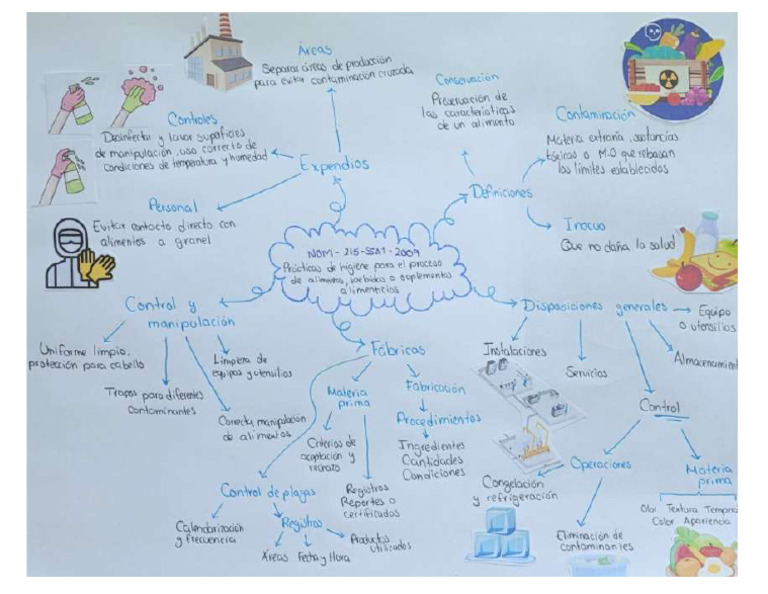 Áreas
Separar áreas de producción
para evitar contaminación cruzada
Conservación
Preservación de
las características
de un alimento
Contaminación
Materia extraña, sustancias
tóxicas o M.O que rebasan
los límites establecidos
Controles
Desinfectar y lavar superficies
de manipulación, uso correcto de
condiciones de temperatura y humedad
Expendios
Definiciones
Personal
Evitar contacto directo con
alimentos a granel
Inocuo
Que no daña la salud
NOM-215-SSA1-2009
Prácticas de higiene para el proceso
de alimentos, bebidas o suplementos
alimenticios
Control y
manipulación
Uniforme limpio,
protección para cabello
Trapos para diferentes
contaminantes
Limpieza de
equipos y utensilios
Correcta manipulación
de alimentos
Fábricas
Materia
prima
Criterios de
aceptación y
rechazo
Registros
Reportes o
certificados
Fabricación
Procedimientos
Ingredientes
Cantidades
Condiciones
Control de plagas
Calendarización
y frecuencia
Registros
Áreas
Fecha y Hora
Productos
utilizados
Disposiciones generales
Equipo
o utensilios
Instalaciones
Servicios
Almacenamient
Control
Operaciones
Congelación
y refrigeración
Eliminación de
contaminantes
Materia
prima
Olor Textura Tempera
Color Apariencia